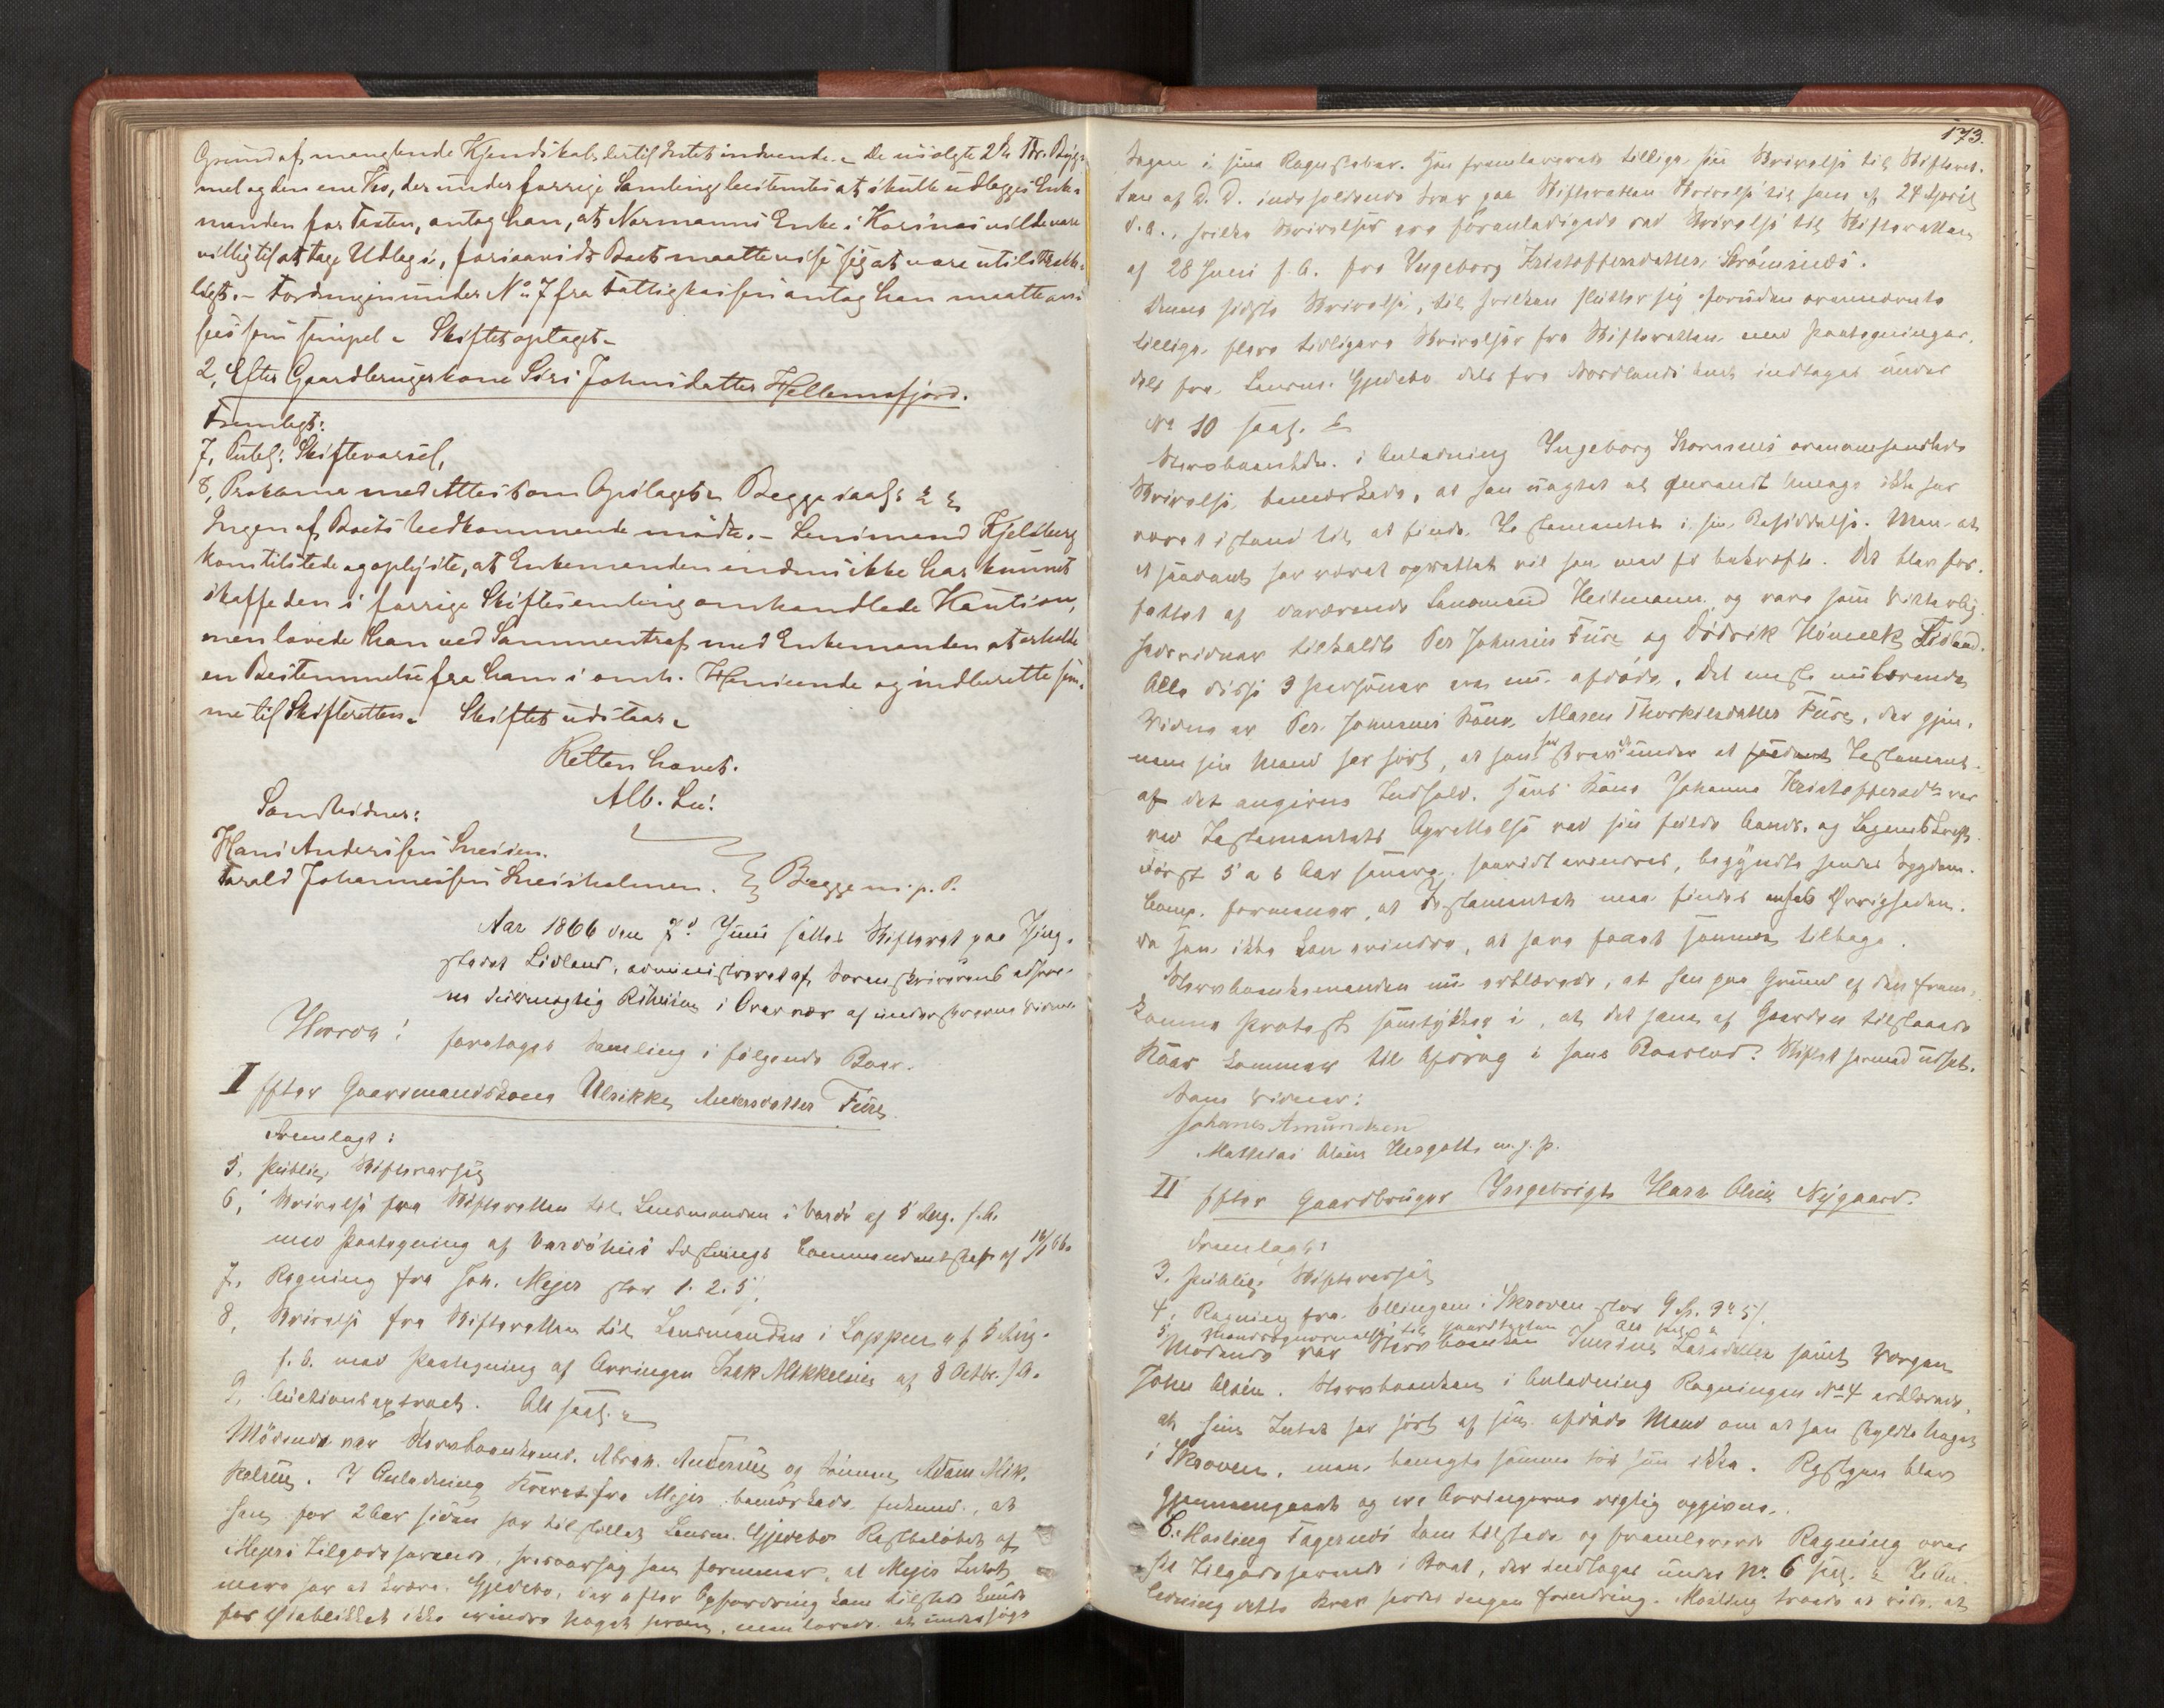 Grund af manglende Kjendskab dertil Intet indvende. De usolgte 2de Tdr. Byg-
mel og den ene Ko, der under forrige Samling besluttedes at skulle udlægges Enke-
manden for Testen, antog han, at Normanns Enke i Korsnæs vilde være
villig til at tage Udlæg i, forsaavidt Boet maatte vise sig at være utilstrække-
ligt. – Fordringen under No 7 fra Fattigkassen antog han maatte an-
sees som simpel. Skiftet optaget.
2, Efter Gaardbrugerkone Siri Johnsdatter Hellemofjord.
Fremlagt:
7, Publ: Skiftevarsel,
8, Proklama med Attest om Opslaget. Begge saal:
Ingen af Boets Vedkommende mødte. – Lensmand Kjelsberg
kom tilstede og oplyste, at Enkemanden endnu ikke har kunnet
skaffe den i forrige Skiftesamling omhandlede Kaution,
men lovede han ved Sammentræf med Enkemanden at erholde
en Bestemmelse fra ham i omh. Henseende og indberette sam-
me til Skifteretten. Skiftet udstaar.
Retten hævet.
Alb. Lu:
Samt Vidner:
Hans Andersen Sneisen.
Tarald Johannessen Sneisholmen. Begge m. p. P.
Aar 1866 den 7d Juni sattes Skifteret paa Thing-
stedet Lidland, administreret af Sorenskriverens edsvor-
ne Fuldmægtig i Overvær af underskrevne Vidner
Hvorda: foretoges Samling i følgende Boer.
I Efter Gaardmandskone Ulrikke Andersdatter Fure
Fremlagt:
5, Public. Skiftevarsel
6, Skrivelse fra Skifteretten til Lensmanden i Vardø af 5 Aug. f. A.
med Paategning af Vardøhuus Fæstnings Commandantskab af 16/1 66.
7, Regning fra Joh. Mejer stor 1. 2. 5.
8, Skrivelse fra Skifteretten til Lensmanden i Loppen af 5 Aug.
f. A. med Paategning af Arvingen Isak Mikkelsen af 8 Octbr. f. A.
9, Auctionsextract. Alt saal.
Mødende var Stervboenkemd. Abrah. Andersen og Sønnen Adam Mik-
kelsen. I Anledning Kravet fra Mejer bemærkede Enkemd., at
han for 2 Aar siden har tilstillet Lensm. Gjedebo Restbeløbet af
Mejers Tilgodehavende, hvorfor han formener, at Mejer Intet
mere har at kræve. Gjedebo, der efter Opfordring kom tilstede kunde
for Øieblikket ikke erindre Noget herom, men lovede at undersøge
173.
Sagen i sine Regnskaber. Han fremleverede tillige sin Skrivelse til Skifteret-
ten af D. D. indeholdende Svar paa Skifteretten Skrivelse til ham af 24 April
d. A., hvilke Skrivelser ere foranledigede ved Skrivelse til Skifteretten
af 28 Juni f. A. fra Ingeborg Kristoffersdatter Strømsnæs.
Denne sidste Skrivelse, til hvilken slutter sig foruden ovennævnte
tillige flere tidligere Skrivelser fra Skifteretten med Paategninger,
dels fra Lensm. Gjedebo dels fra Nordlands Amt indtages under
No 10 saal.
Stervboenkem. i Anledning Ingeborg Stromsnæs ovenomhandlede
Skrivelse bemærkede, at han uagtet al anvendt Umage ikke har
været istand til at finde Testamentet i sin Besiddelse. Men at
et saadant har været oprettet vil han med Ed bekræfte. Det blev for-
fattet af daværende Lensmand Heitmann og vare som Vitterlig-
hedsvidner tilkaldte Per Johnsen Fure og Didrik Lidland.
Alle disse 3 Personer ere nu afdøde. Det eneste nulevende
Vidne er Per Johnsens Kone Maren Thorkilsdatter Fure, der gjen-
nem sin Mand har hørt, at han har skrevet under et saadant Testament
af det angivne Indhold. Hans Kone Johanne Kristoffersdtr var
ved Testamentets Oprettelse ved sin fulde Aands- og Legemskraft.
Først 5 a 6 Aar senere, saavidt erindres, begyndte hendes Sygdom.
Comp. formener, at Testamentet maa findes hos Øvrigheden,
da han ikke kan erindre, at have faaet samme tilbage.
Stervboenkemanden nu erklærede, at han paa Grund af den frem-
komne Protest samtykker i, at det ham af Gaarden tilstaaede
Kaar kommer til Afdrag i hans Boeslod. Skiftet hermed udsat.
Som Vidner:
Johanes Amundsen
Mathias Olsen m. f. P.
II Efter Gaardbruger Ingebrigt Hans Olsen Nygaard.
Fremlagt:
3, Public. Skiftevarsel
4, Regning fra Ellingsen i Skroven stor 9 Sp. 3 5.
5, til Alt saal.
Mødende var Stervboenken Larsdatter samt Værgen
John Olsen. Stervboenken i Anledning Regningen No 4 erklærede,
at hun Intet har hørt af sin afdøde Mand om at han skyldte Noget
i Skroven, men benægte samme tør hun ikke. Registr. blev
gjennemgaaet og ere Arvingerne rigtig opgivne.
C. Mosling Fagernæs kom tilstede og fremleverede Regning over
sit Tilgodehavende i Boet, der indtages under No 6 saal. I An-
ledning dette Krav havdes ingen Erindring. Mosling troede at vide, at